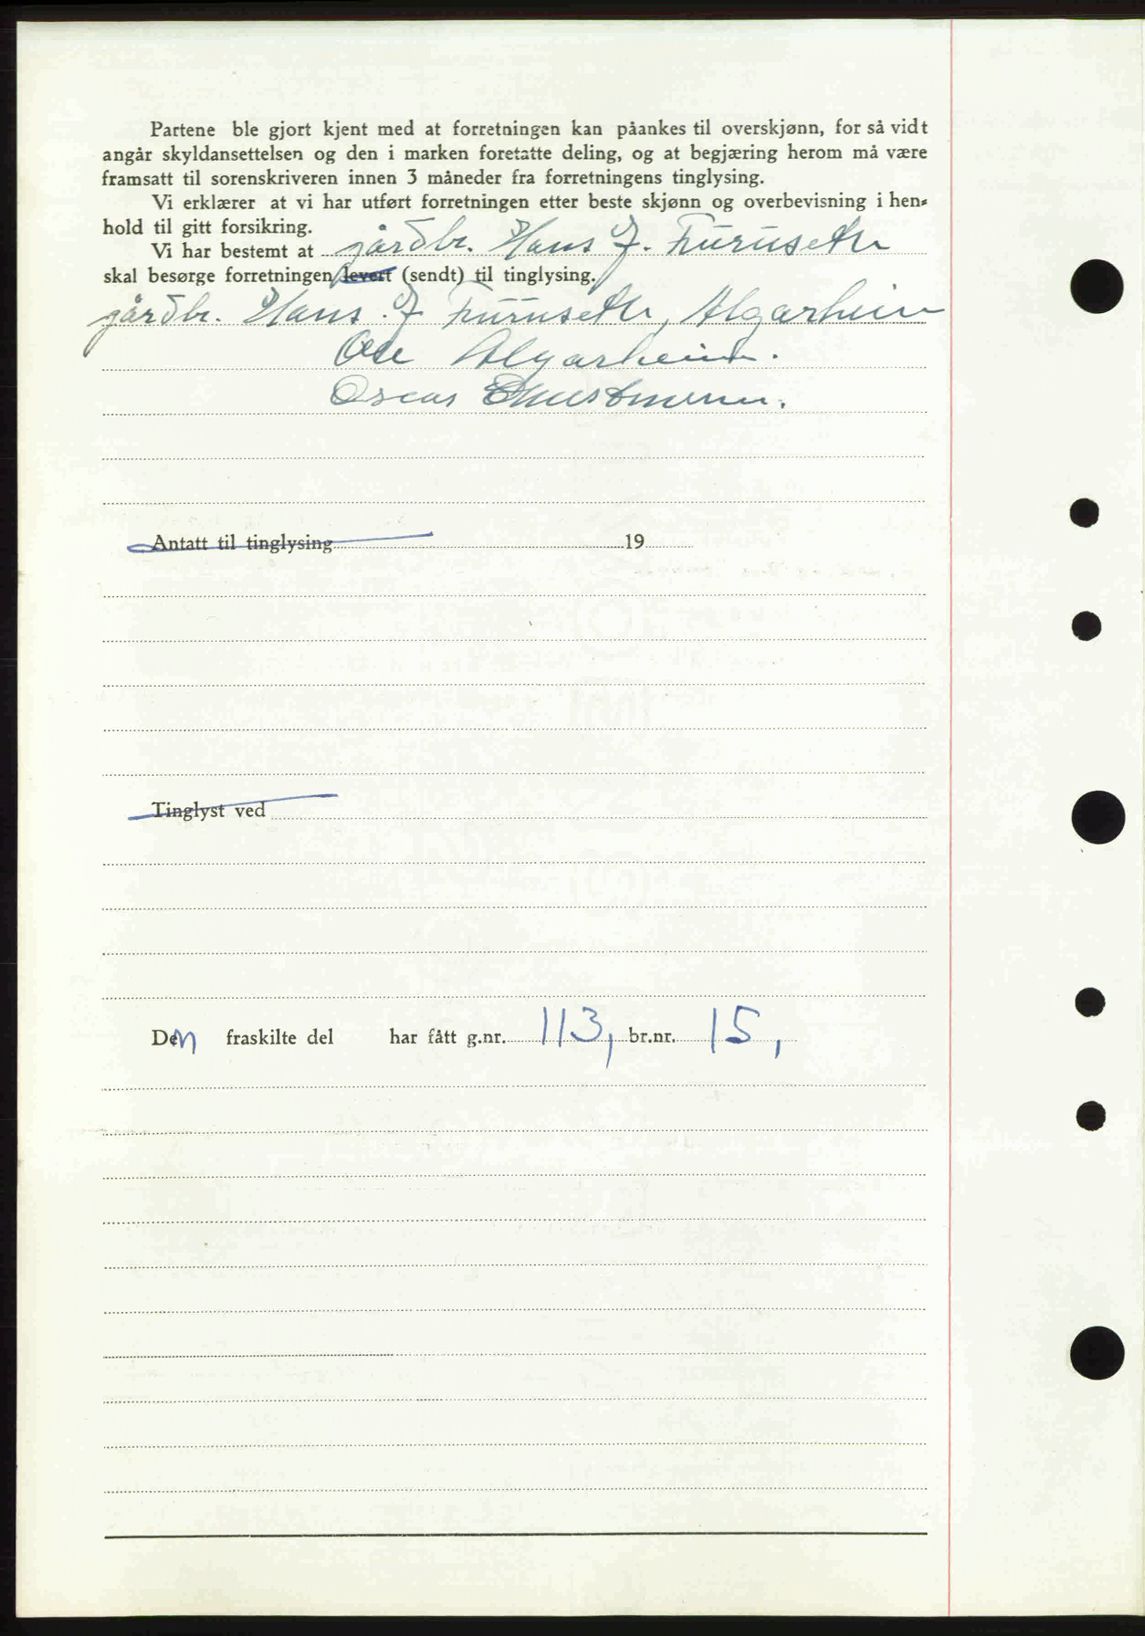 Partene ble gjort kjent med at forretningen kan påankes til overskjønn, for så vidt
angår skyldansettelsen og den i marken foretatte deling, og at begjæring herom må være
framsatt til sorenskriveren innen 3 måneder fra forretningens tinglysing.
Vi erklærer at vi har utført forretningen etter beste skjønn og overbevisning i hen-
hold til gitt forsikring.
Vi har bestemt at gårdbr. Hans J. Furuseth
skal besørge forretningen levert (sendt) til tinglysing.
gårdbr. Hans J Furuseth, Algarheim
Ole Algarheim.
Oscar
Antatt til tinglysing 19
Tinglyst ved
Den fraskilte del har fått g.nr. 113, br.nr. 15,